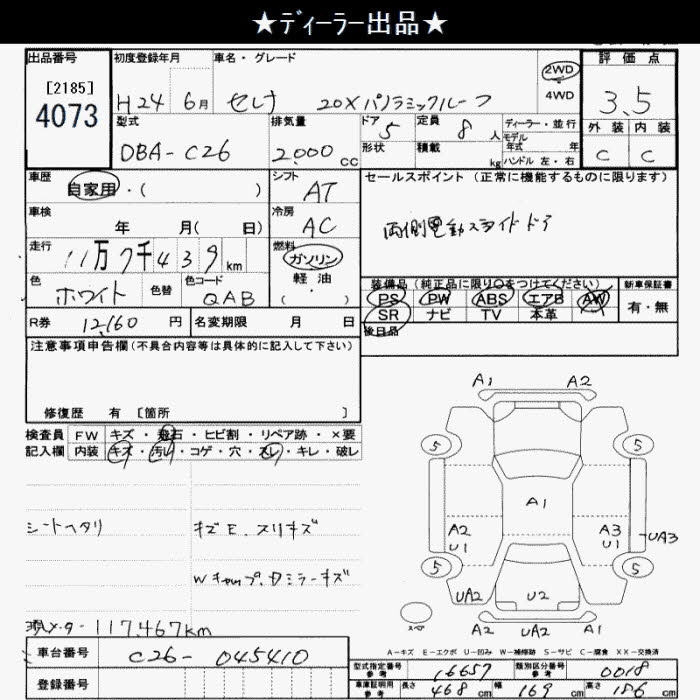 ★ディーラー出品★
出品番号 初度登録年月 車名・グレード 2WD 評価点
[2185] 4WD
4073 H24 6月 セレナ 20Xパノラミックルーフ 3.5
型式 排気量 ドア 5 定員 8人 ディーラー・並行 外装 内装
モデル
DBA-C26 2,000 cc 形状 積載 kg 年式 年 C C
ハンドル 左・右
車歴 シフト セールスポイント (正常に機能するものに限ります)
自家用・( ) AT
車検 冷房 両側電動スライドドア
年 月( 日) AC
走行 燃料
11万7千439km ガソリン
色 色替 色コード 軽油 装備品(純正品に限り○をつけてください) 新車保証書
ホワイト QAB ( ・ ) PS PW ABS エアB AW 有・無
R券 12,160 円 名変期限 月 日 SR ナビ TV 本革
後日品
注意事項申告欄(不具合内容等は具体的に記入して下さい)
修復歴 有 [箇所 ]
A1 A2
検査員 FW キズ・飛石・ヒビ割・リペア跡・×要
記入欄 内装 キズ・汚レ・コゲ・穴・スレ・キレ・破レ
5 5
A1
シートヘタリ キズE.スリキズ
A2 A3
U1 U1 UA3
5 5
Wキャップ、ドミラーキズ
UA2 U2
現メーター 117,467km
スペア A2 UA2 A1
A-キズ E-エクボ U-凹み W-補修跡 S-サビ C-腐食 XX-交換済
車台番号 C26-045410
型式指定番号 参考 16657 類別区分番号 参考 0018
登録番号
車庫証明用 参考 長さ 468 cm 幅 169 cm 高さ 186 cm